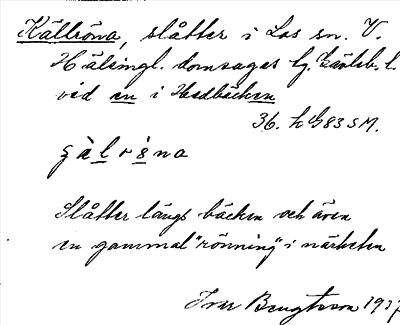 Källröna, slåtter i Los sn. V.
Hälsingl. domsagas tg. Gävleb. l.
vid en i Hedbäcken
36. h G83SM.
slåtter längs bäcken och även
en gammal "rönning" i närheten
Ivar Bengtsson 1937